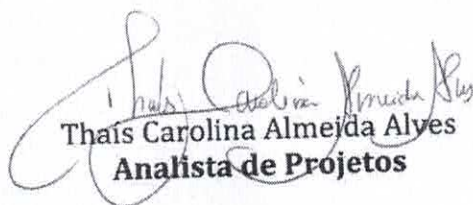 Thais Carolina Almeida Alves
Thaís Carolina Almeida Alves
Analista de Projetos